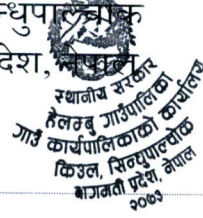 न्धुपाल्चोक
देश, नेपाल
स्थानीय सरकार
हेलम्बु गाउँपालिका
गाउँ कार्यपालिकाको कार्यालय
किउल, सिन्धुपाल्चोक
बागमती प्रदेश, नेपाल
२०७३